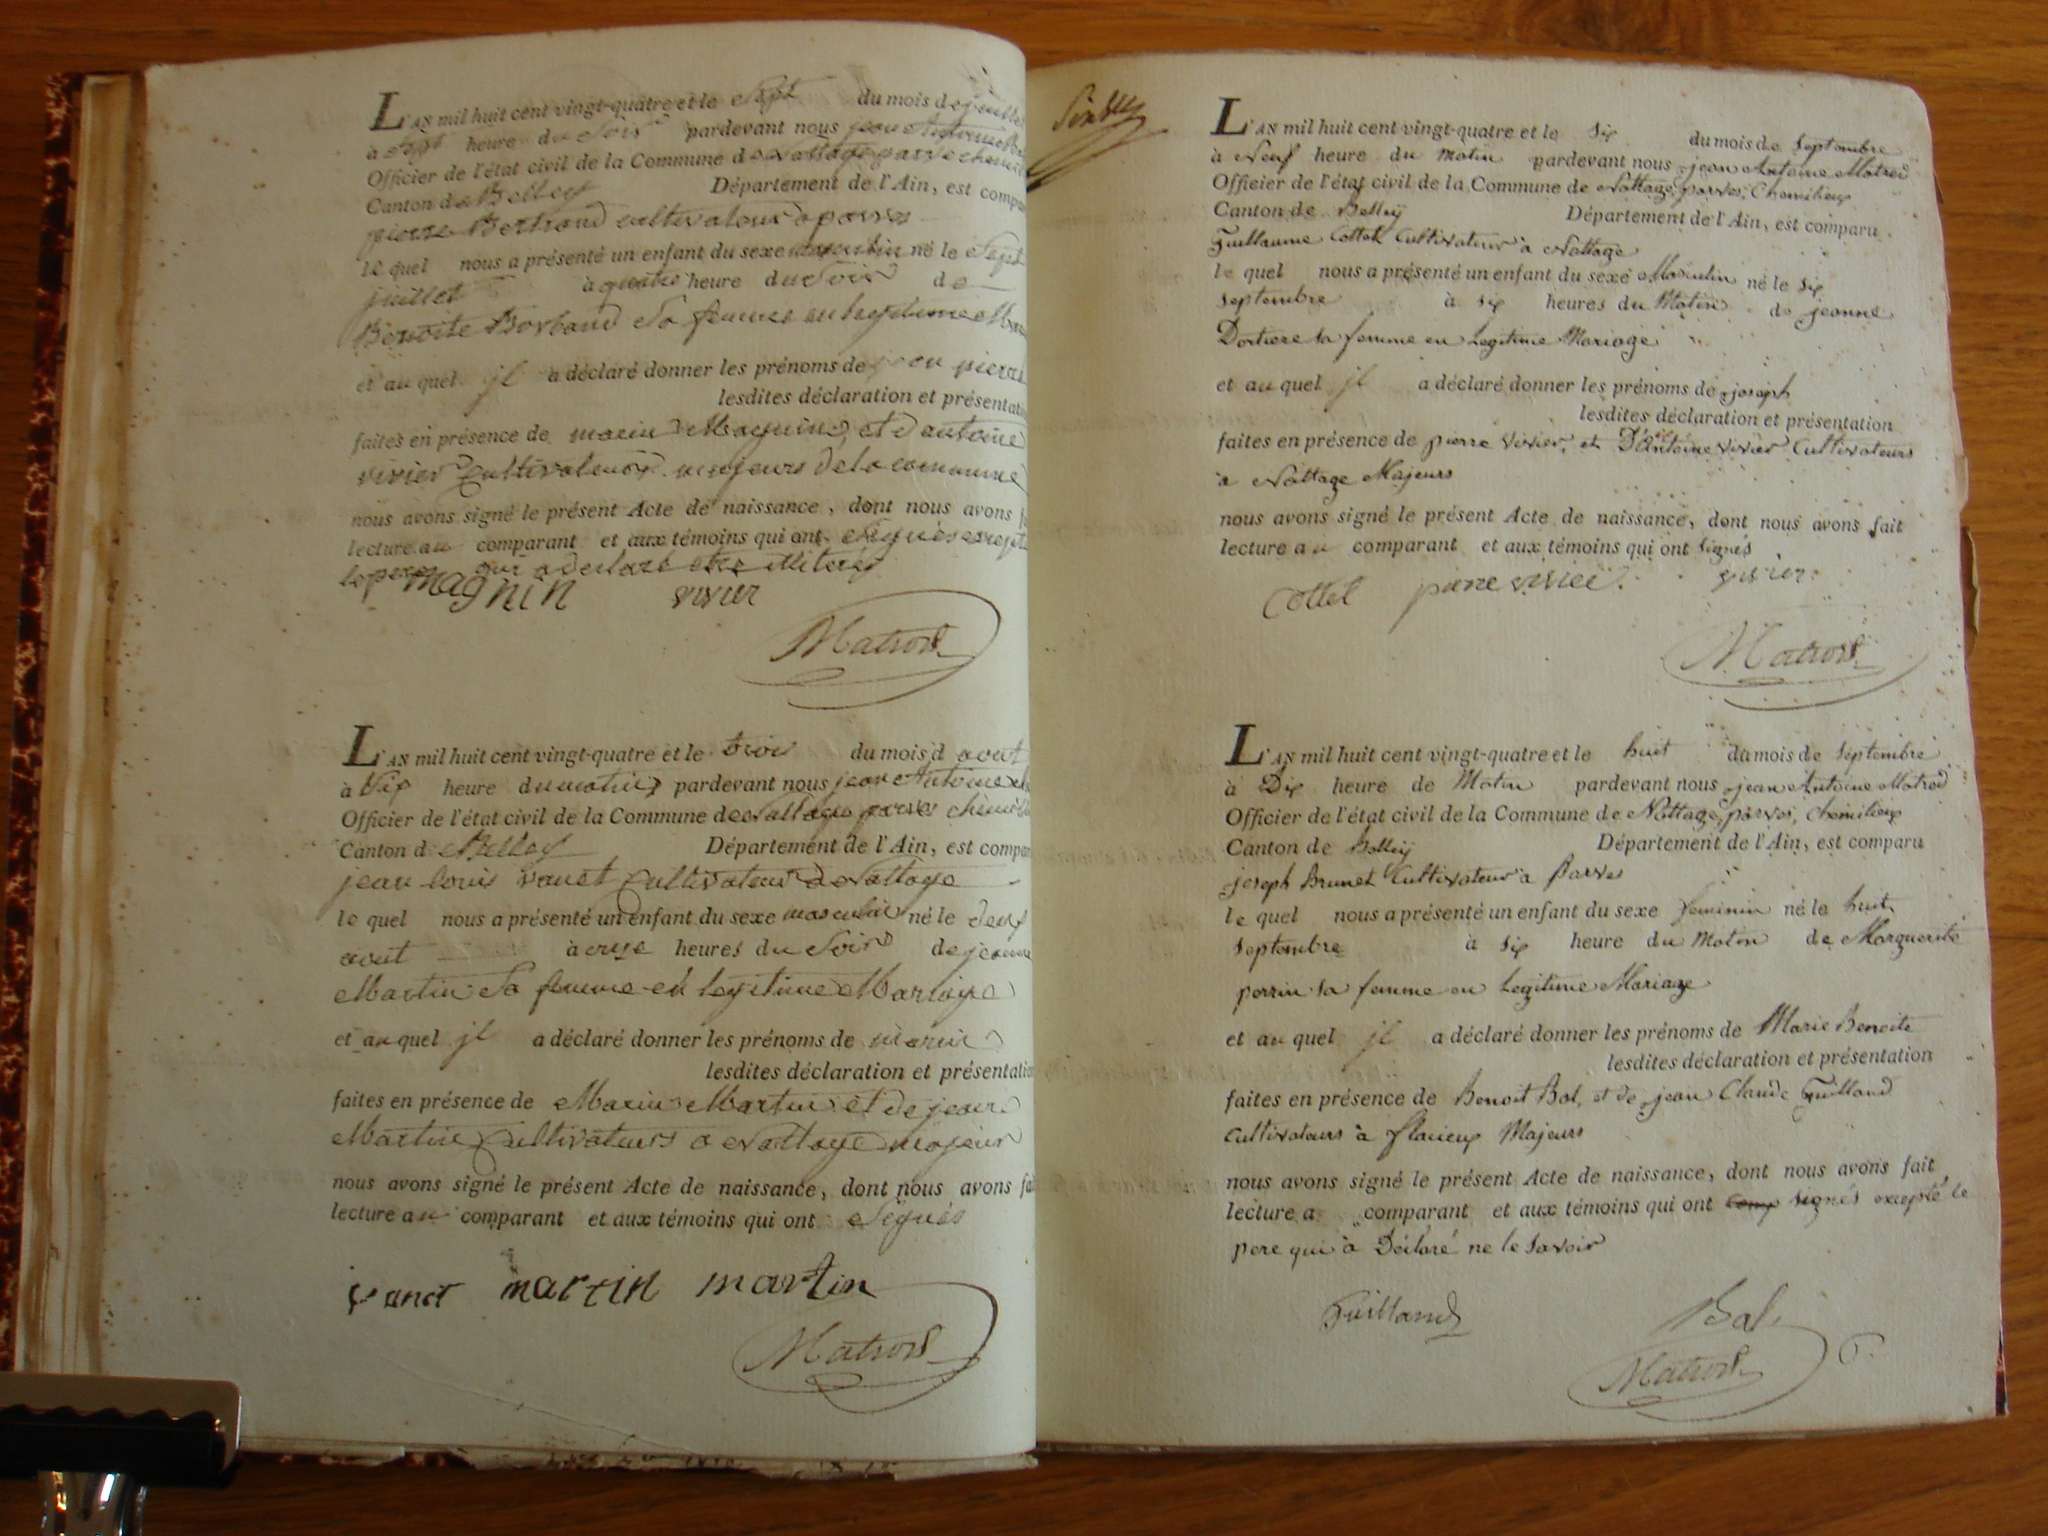 L'AN mil huit cent vingt-quatre et le Sept du mois de juillet
à Sept heure du Soir pardevant nous jean Antoine
Officier de l'état civil de la Commune de Nattage parves
Canton de Belley Département de l'Ain, est
pierre Bertrand cultivateur a parves
le quel nous a présenté un enfant du sexe masculin né le Sept
juillet à quatre heure du Soir de
Benoite Borband Sa femme en legitime
et au quel jl a déclaré donner les prénoms de pierre
lesdites déclaration et
faites en présence de marin Magnin, et d'antoine
vivier Cultivateurs majeurs de la commune
nous avons signé le présent Acte de naissance, dont nous avons
lecture au comparant et aux témoins qui ont Signés excepté
le pere qui a declaré etre illiteré
magnin vivier
Matrod
L'AN mil huit cent vingt-quatre et le trois du mois d aout
à Six heure du matin pardevant nous jean Antoine
Officier de l'état civil de la Commune de Nattage parves
Canton d Belley Département de l'Ain, est
jean louis vanet Cultivateur de Nattage
le quel nous a présenté un enfant du sexe masculin né le deux
aout à onze heures du Soir de jeanne
Martin Sa femme en legitime Mariage
et au quel jl a déclaré donner les prénoms de marin
lesdites déclaration et présentation
faites en présence de Marin Martin et de jean
Martin Cultivateurs a Nattage majeur
nous avons signé le présent Acte de naissance, dont nous avons
lecture au comparant et aux témoins qui ont Signés
vanet martin martin
Matrod
L'AN mil huit cent vingt-quatre et le six du mois de Septembre
à Neuf heure du matin pardevant nous jean Antoine Matrod
Officier de l'état civil de la Commune de Nattage, parves, Chemilieu
Canton de Belley Département de l'Ain, est comparu
Guillaume Cottet Cultivateur à Nattage
le quel nous a présenté un enfant du sexe Masculin né le six
septembre à six heures du Matin de jeanne
Dortiere sa femme en Legitime Mariage
et au quel jl a déclaré donner les prénoms de joseph
lesdites déclaration et présentation
faites en présence de pierre vivier, et D'Antoine vivier Cultivateurs
à Nattage Majeurs
nous avons signé le présent Acte de naissance, dont nous avons fait
lecture au comparant et aux témoins qui ont signés
Cottet piere vivier vivier
Matrod
L'AN mil huit cent vingt-quatre et le huit du mois de Septembre
à Dix heure de Matin pardevant nous jean Antoine Matrod
Officier de l'état civil de la Commune de Nattage, parves, Chemilieu
Canton de Belley Département de l'Ain, est comparu
joseph Brunet Cultivateur à Parves
le quel nous a présenté un enfant du sexe feminin né le huit
septembre à six heure du Matin de Marguerite
perrin sa femme en Legitime Mariage
et au quel jl a déclaré donner les prénoms de Marie Benoite
lesdites déclaration et présentation
faites en présence de Benoit Bal, et de jean Claude Guilland
cultivateurs à flacieux Majeurs
nous avons signé le présent Acte de naissance, dont nous avons fait
lecture a comparant et aux témoins qui ont signés excepté le
pere qui à Déclaré ne le savoir
Guilland Bal
Matrod